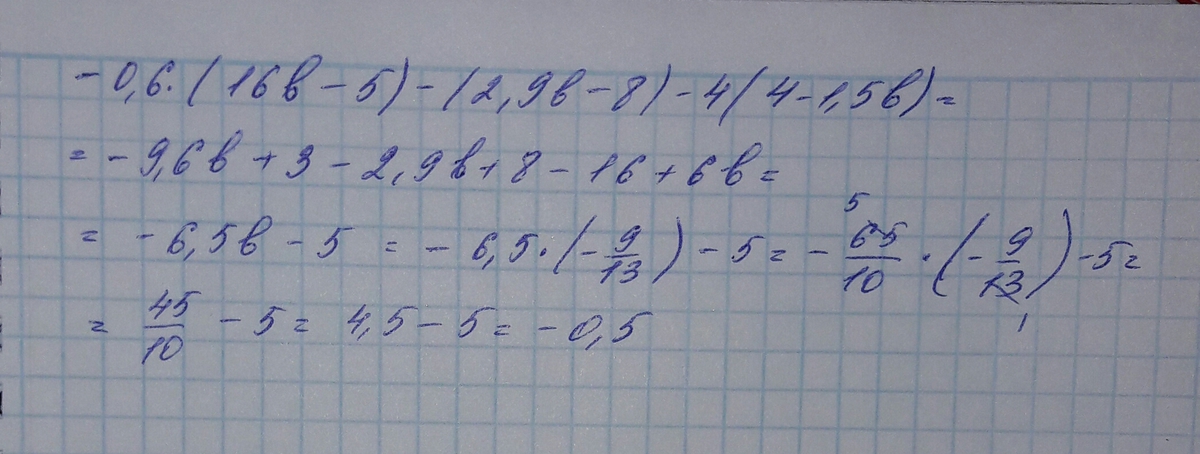 -0,6·(16в-5)-(2,9в-8)-4(4-1,5в)=
=-9,6в+3-2,9в+8-16+6в=
=-6,5в-5=-6,5·(-9/13)-5=-65/10·(-9/13)-5=
5
1
=45/10-5=4,5-5=-0,5